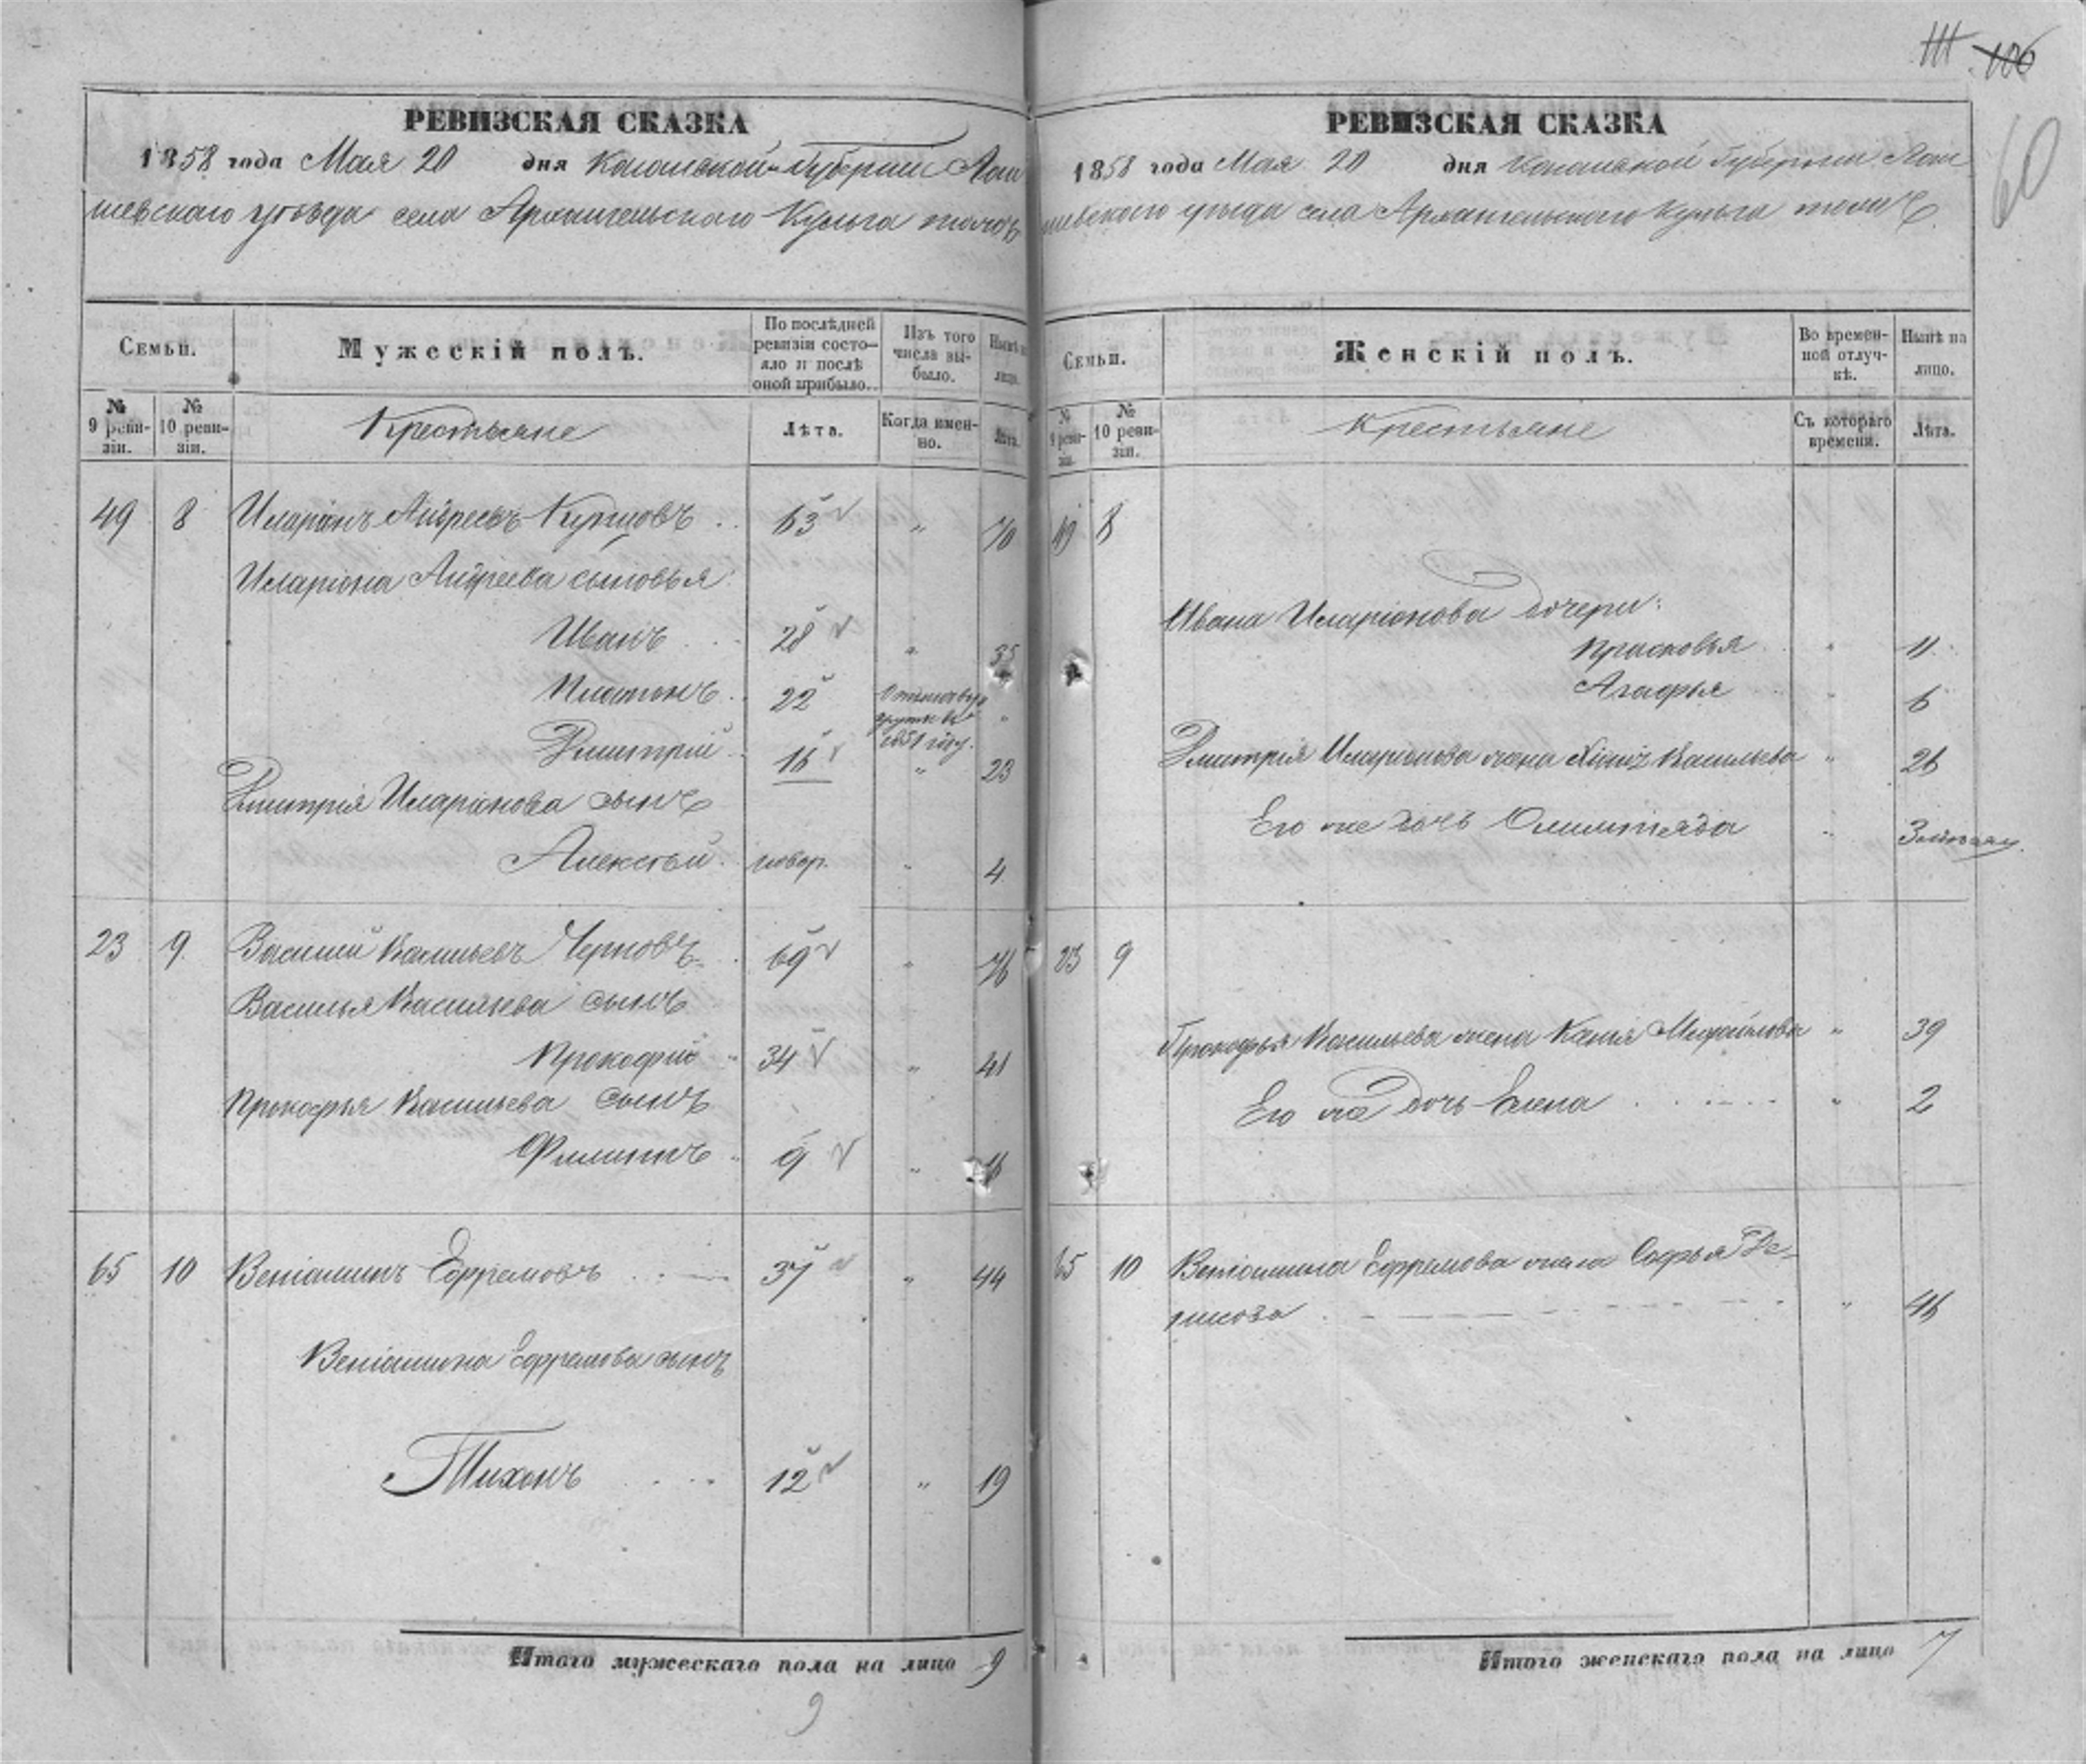 111 106
60
РЕВИЗСКАЯ СКАЗКА
1858 года Мая 20 дня Казанской Губернии Лаи
шевскаго уѣзда села Архангельскаго Кульга тожъ
Семьи.
Мужескій полъ.
По послѣдней ревизіи состо-яло и послѣ оной прибыло.
Изъ того числа вы-было.
Нынѣ на лицо.
№ 9 реви-зіи.
№ 10 реви-зіи.
Крестьяне
Лѣта.
Когда имен-но.
Лѣта.
49 8 Иларіонъ Андреевъ 63 " 70
Иларіона Андреева сыновья:
Иванъ 28 " 35
Платонъ 22 "
1851 году.
Дмитрій 16 " 23
Дмитрія Иларіонова сынъ
Алексѣй новор. " 4
23 9 Василий Васильевъ Черновъ 69 " 76
Василья Васильева сынъ
Прокофій 34 " 41
Прокофья Васильева сынъ
Филиппъ 9 " 16
65 10 Веніаминъ Ефремовъ 37 " 44
Веніамина Ефремова сынъ
Тихонъ 12 " 19
Итого мужескаго пола на лицо 9
9
РЕВИЗСКАЯ СКАЗКА
1858 года Мая 20 дня Казанской Губернии Лаи
шевскаго уѣзда села Архангельскаго Кульга тожъ.
Семьи.
Женскій полъ.
Во времен-ной отлуч-кѣ.
Нынѣ на лицо.
№ 9 реви-зіи.
№ 10 реви-зіи.
Крестьяне
Съ котораго времени.
Лѣта.
49 8
Ивана Иларіонова дочери:
Прасковья " 11
Агафья " 6
Дмитрія Иларіонова жена Васильева " 26
Его же дочь Олимпіяда "
23 9
Прокофья Васильева жена Ксенія Михайлова " 39
Его же дочь Елена " 2
65 10 Веніамина Ефремова жена Софья Де-
нисова " 46
Итого женскаго пола на лицо 7